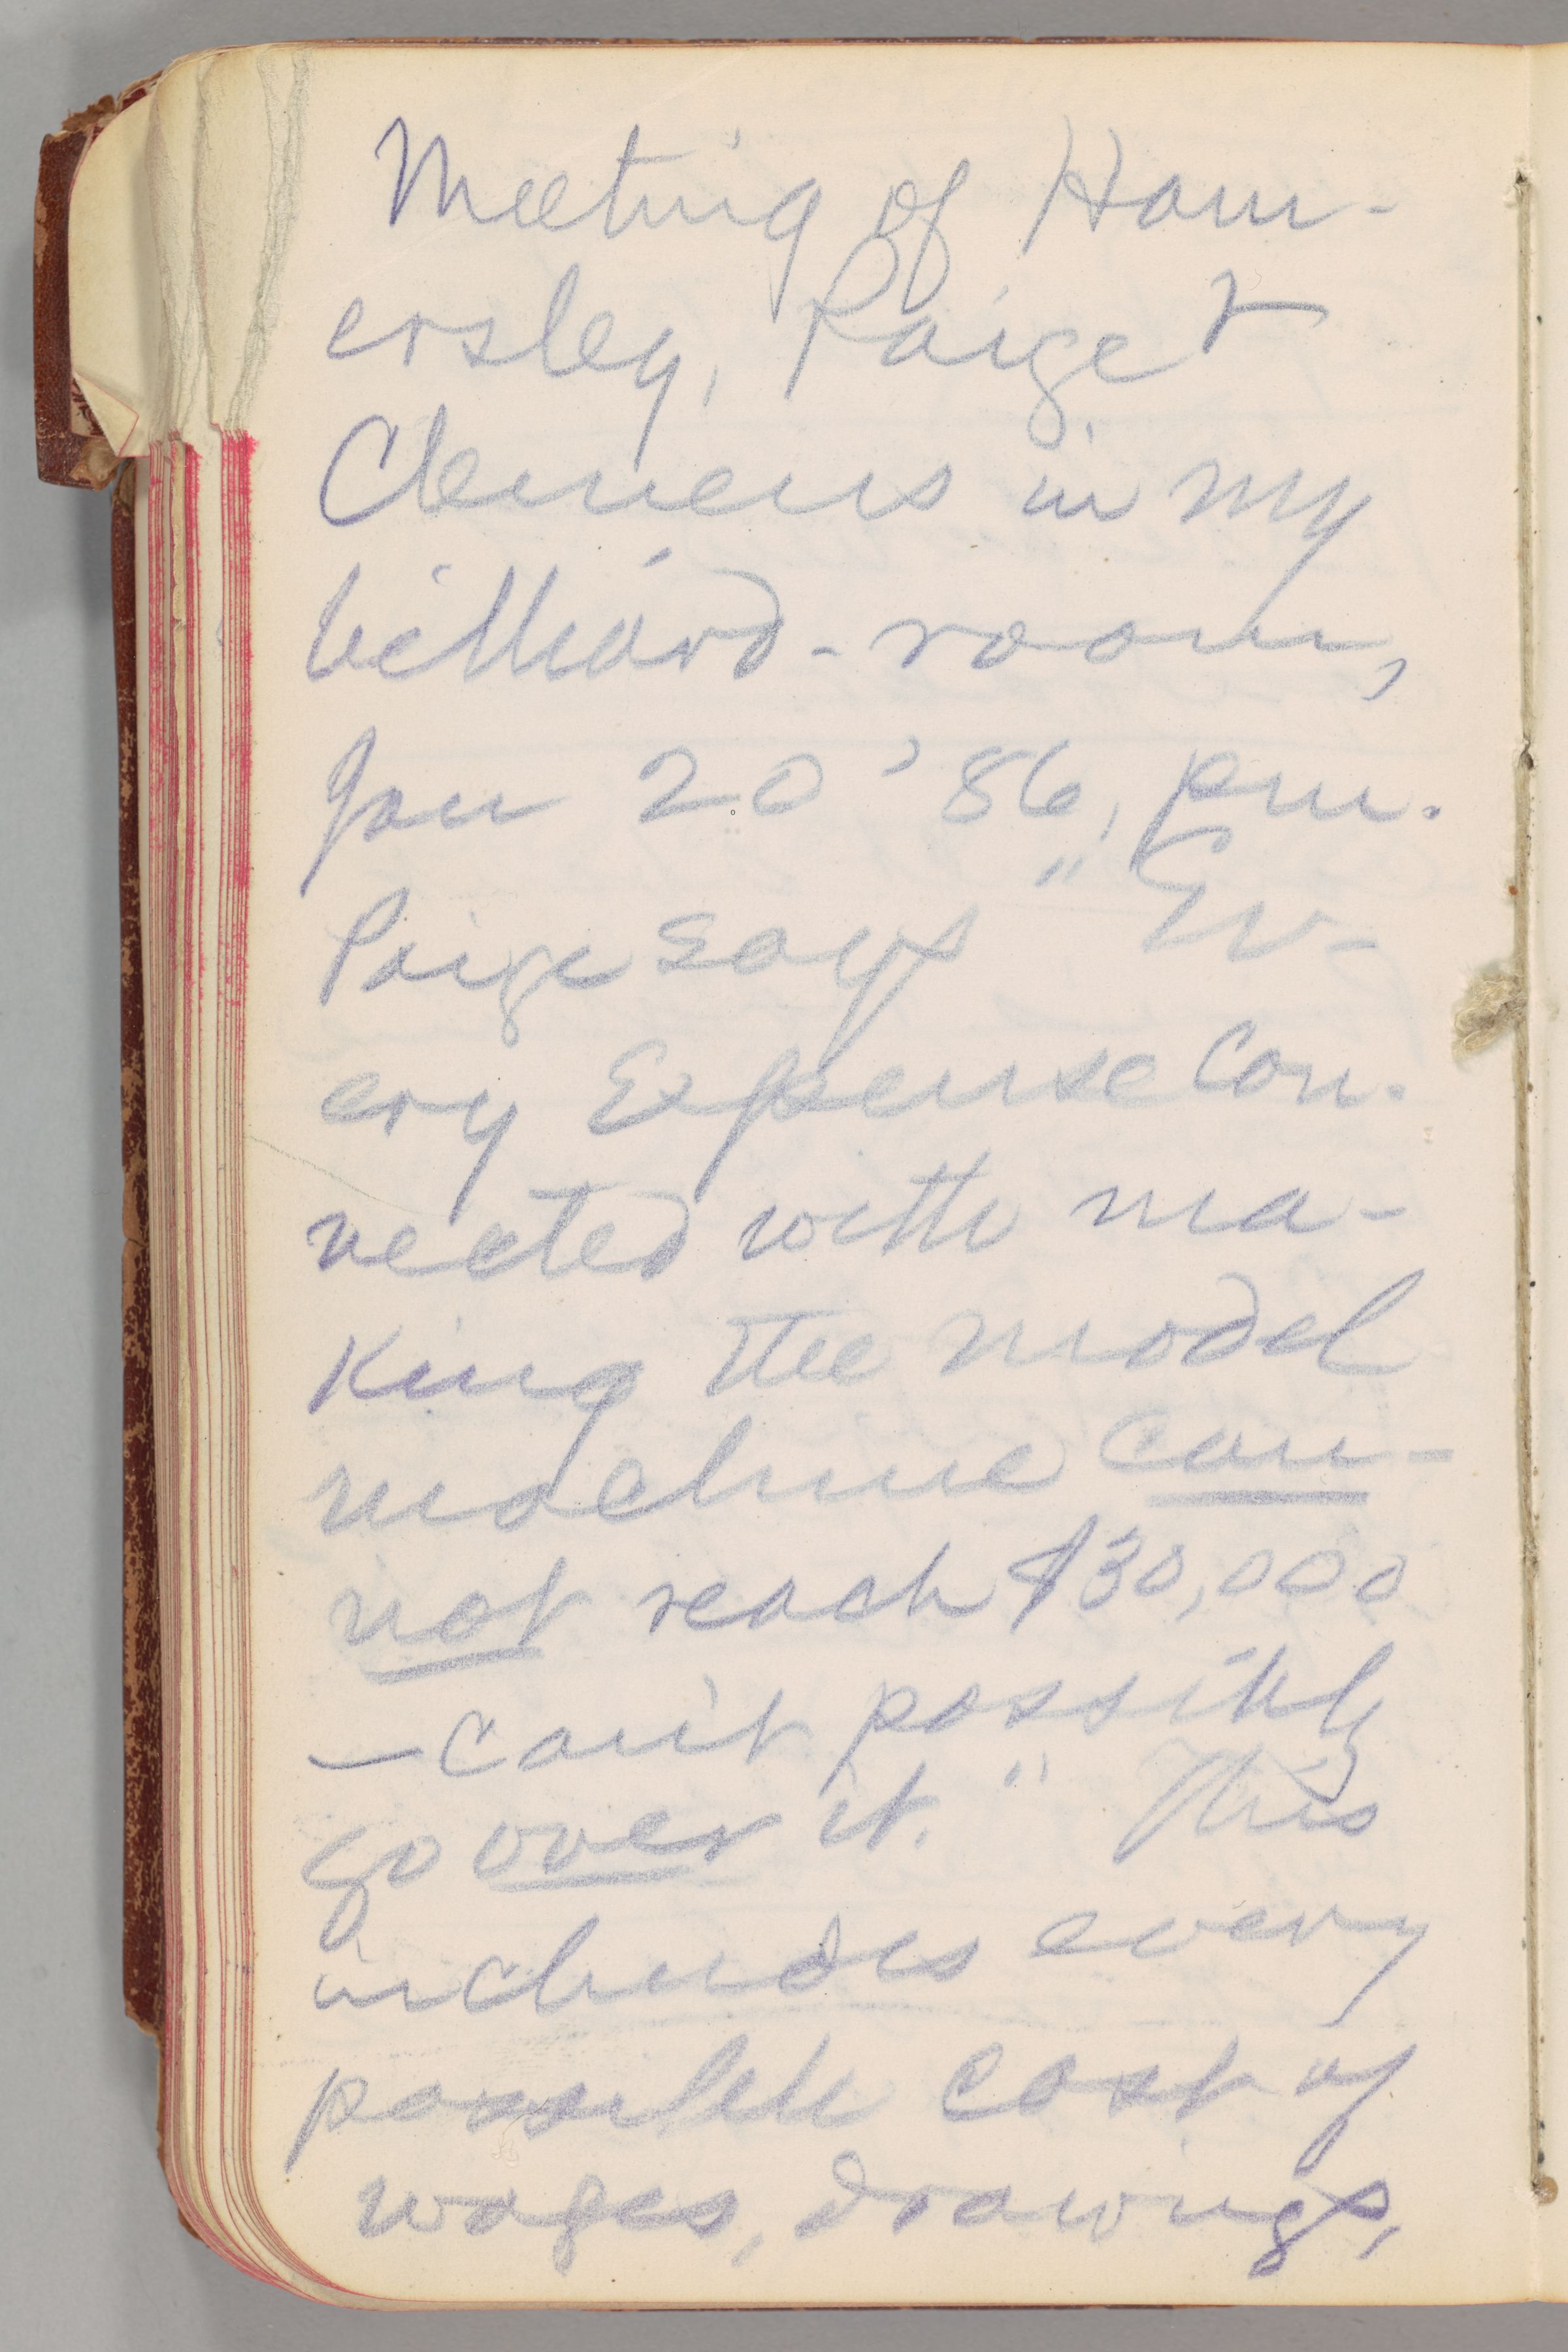 Meeting of Ham-
ersley, Paige &
Clemens in my
billiard-room,
Jan 20 '86, pm.
Paige says "Ev-
ery Expense Con-
nected with ma-
king the model
machine can-
not reach $30,000
— can't possibly
go over it." This
includes every
possible cost of
wages, drawings,